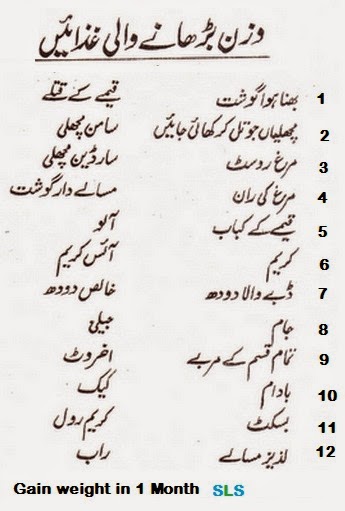 وزن بڑھانے والی غذائیں
1 بھنا ہوا گوشت قیمے کے قتلے
2 مچھلیاں جو تل کر کھائی جائیں سامن مچھلی
3 مرغ روسٹ سارڈین مچھلی
4 مرغ کی ران مسالے دار گوشت
5 قیمے کے کباب آلو
6 کریم آئس کریم
7 ڈبے والا دودھ خالص دودھ
8 جام جیلی
9 تمام قسم کے مربے اخروٹ
10 بادام کیک
11 بسکٹ کریم رول
12 لذیز مسالے راب
Gain weight in 1 Month SLS